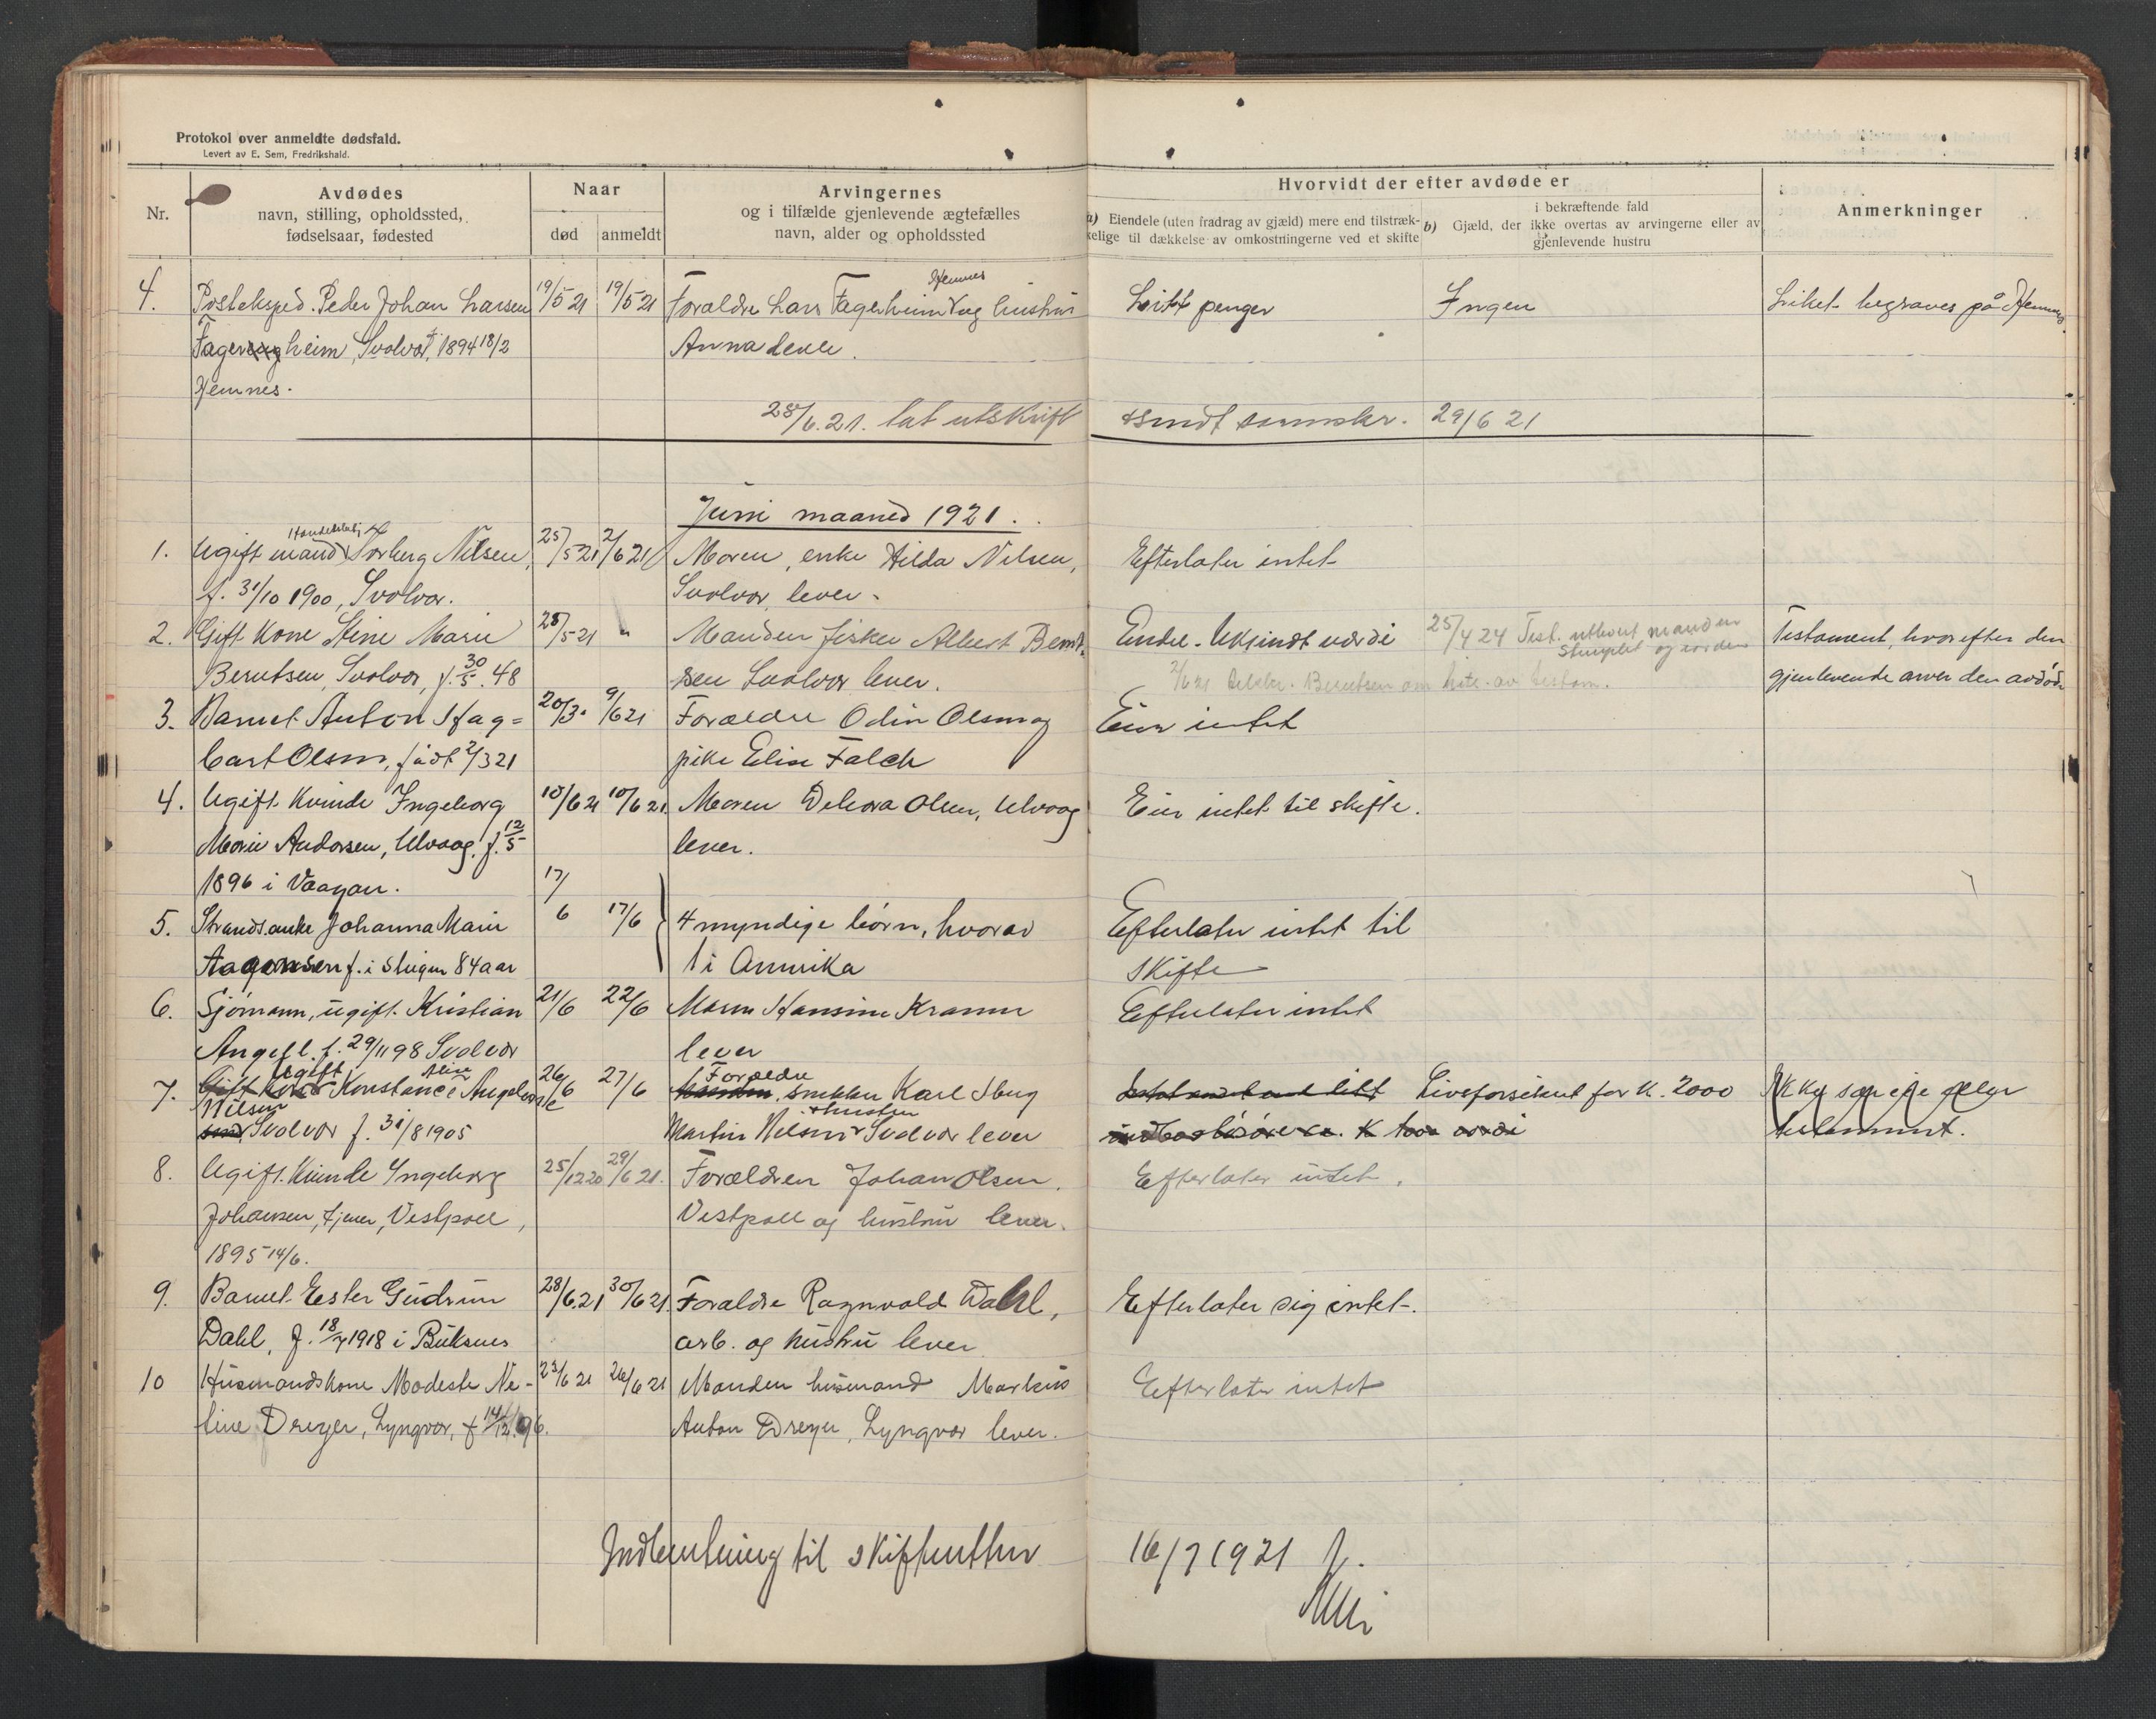 Protokol over anmeldte dødsfald.
Levert av E. Sem, Fredrikshald.
Nr.
Avdødes
navn, stilling, opholdssted,
fødselsaar, fødested
Naar
død
anmeldt
Arvingernes
og i tilfælde gjenlevende ægtefælles
navn, alder og opholdssted
Hvorvidt der efter avdøde er
a) Eiendele (uten fradrag av gjæld) mere end tilstræk-
kelige til dækkelse av omkostningerne ved et skifte
i bekræftende fald
b) Gjæld, der ikke overtas av arvingerne eller av
gjenlevende hustru
Anmerkninger
4. Posteksped. Peder Johan Larsen 19/5 21 19/5 21 Forældre Lars Fagerheim Hemnes og hustru Litt penger Ingen Liket begraves på Hemnes.
Fagerheim, Svolvær, f. 1894 18/2 Anna lever.
Hemnes.
28/6.21. tat utskrift sendt sorenskr. 29/6 21
Juni maaned 1921.
1. Ugift mand Handelsbetj. Torberg Nilsen, 25/5 21 2/6 21 Moren, enke Hilda Nilsen, Efterlater intet
f. 31/10 1900, Svolvær. Svolvær, lever.
2. Gift kone Stine Marie 28/5 21 " Manden fisker Albert Bernt- Eiendel. Ukjendt værdi 25/4 24 Test. utlevert manden Testament, hvorefter den
stemplet og
Berntsen, Svolvær, f. 30/5.48 sen Svolvær lever. 2/6 21 tilskr. Berntsen om av testam. gjenlevende arver den avdøde
3. Barnet Anton Hag= 20/3. 9/6 21 Forældre Odin Olsen og Eier intet
bart Olsen, født 2/3 21 pike Elise Falch
4. Ugift kvinde Ingeborg 10/6 21 10/6 21. Moren Debora Olsen, Ulvaag Eier intet til skifte.
Marie Andorsen, Ulvaag, f. 12/5 lever.
1896 i Vaagan.
5. Strands.enke Johanna Marie 17/6 17/6 4 myndige børn, hvorav Efterlater intet til
Aagensen f. i Steigen 84 aar 1 i Amerika skifte
6. Sjømann, ugift. Kristian 21/6 22/6 Moren Hansine Kramer Efterlater intet
Angell. f. 29/11 98 Svolvær lever
7. Ugift Konstance Alise 26/6 27/6 Forældre snekker Karl Ibug Liveforsikret for k. 2000 Ikke særeie eller
Nilsen Svolvær f. 31/8 1905 Martin Nilsen + hustru Svolvær lever testament.
8. Ugift. Kvinde Ingeborg 25/12 20 29/6 21. Forældren Johan Olsen. Efterlater intet.
Johansen, tjener, Vestpoll, Vestpoll og hustru lever.
1895 14/6.
9. Barnet Ester Gudrun 28/6.21 30/6 21. Forældre Ragnvald Dahl, Efterlater sig intet.
Dahl, f. 18/7 1918 i Buksnes arb. og hustru lever
10 Husmandskone Modeste Ne- 23/6 21 26/6 21 Manden husmand Markus Efterlater intet
line Dreyer, Lyngvær, f 14/12.96. Anton Dreyer, Lyngvær lever.
Indberetning til skifteretten 16/7 1921